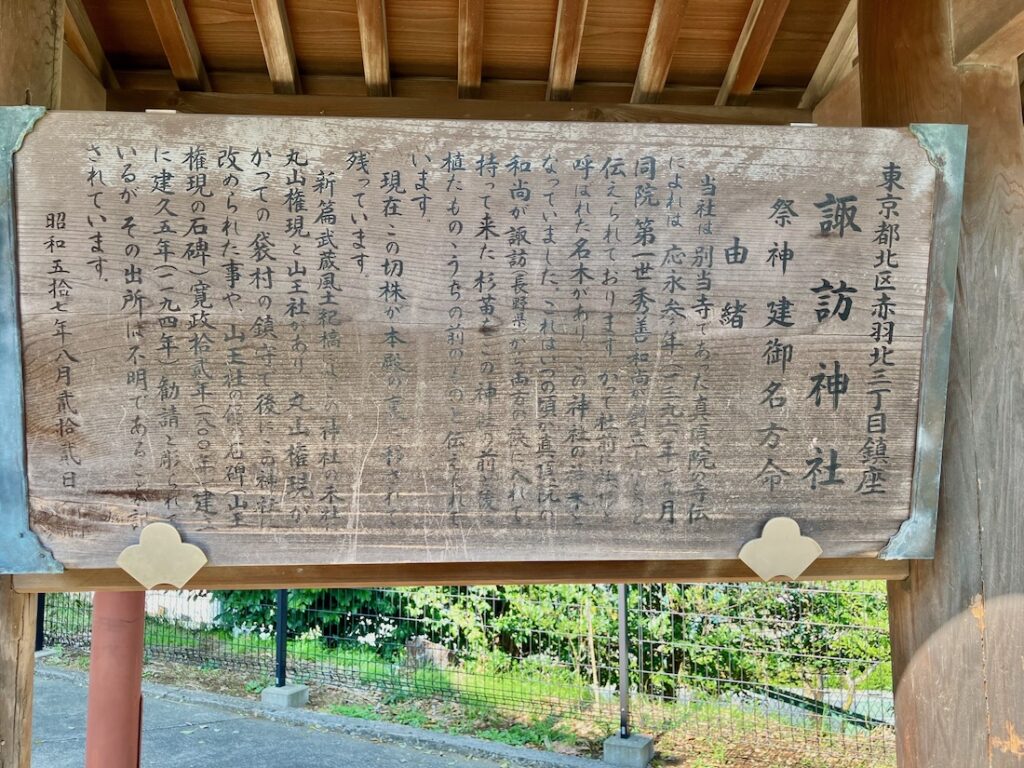 東京都北区赤羽北三丁目鎮座
諏訪神社
祭神 建御名方命
由緒
当社は別当寺であった真頂院の寺伝
によれは 応永参年(一三九六年) 月
同院 第一世秀善和尚が創立
伝えられております。かつて社前に
呼ばれた名木があり、この神社の
なっていました。これはいつの頃か真頂院の
和尚が諏訪(長野県)から両方の袂に入れて
持って来た杉苗をこの神社の前と後に
植たものゝうちの前のものと伝えられて
います。
現在、この切株が本殿の裏に移されて
残っています。
新篇武蔵風土紀稿には この神社の末社
丸山権現と山王社があり 丸山権現が
かつての袋村の鎮守で後にこの神社に
改められた事や、山王社の 石碑(山王
権現の石碑)寛政拾貳年(一八〇〇年)建
に建久五年(一一九四年)勧請と彫られて
いるが その出所は不明であることも記
されています。
昭和五拾七年八月貳拾貳日